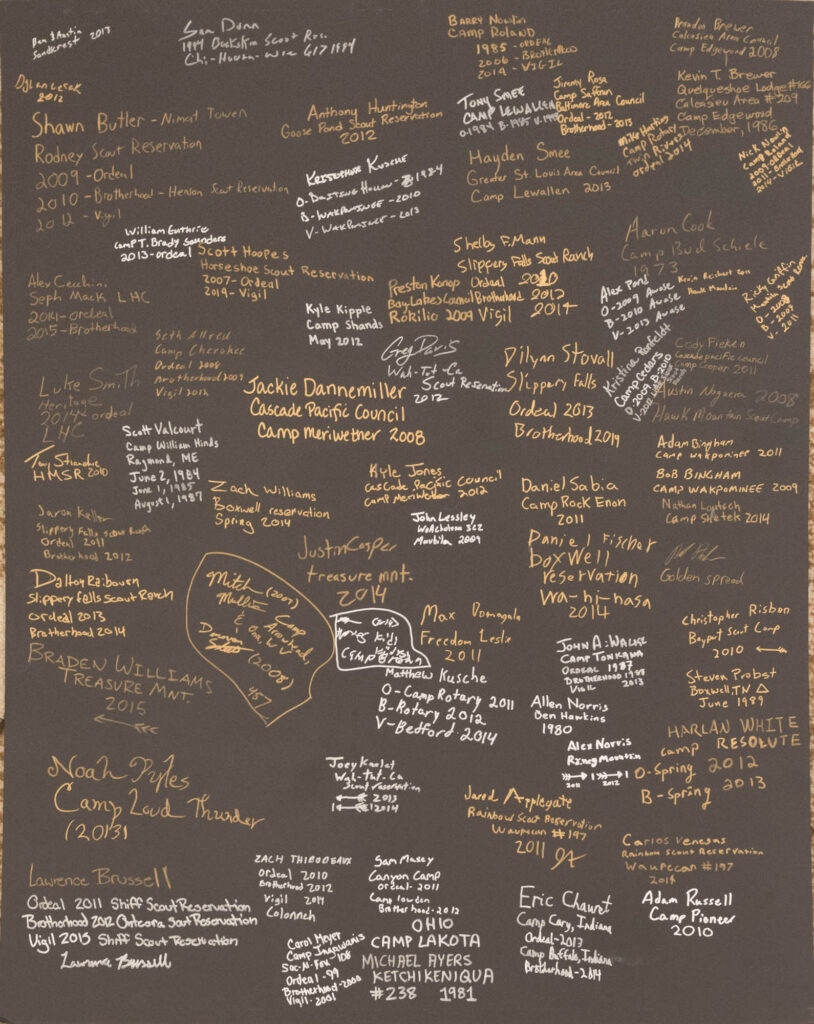 Ben & Austin
Sandcrest 2013
Sam Dunn
1984 Duckskin Scout Res.
Barry Nowlin
Camp Roland
1985 - Ordeal
2006 - Brotherhood
2014 - Vigil
Brandon Brewer
Calcasieu Area Council
Camp Edgewood 2008
Kevin T. Brewer
Quelqueshoe Lodge #166
Calcasieu Area #209
Camp Edgewood
December, 1986
2012
Shawn Butler - Nimat Towen
Rodney Scout Reservation
2009 - Ordeal
2010 - Brotherhood - Henson Scout Reservation
2012 - Vigil
Anthony Huntington
Goose Pond Scout Reservation
2012
Tony Smee
Camp Lewallen
O-1984 B-1985 V-1990
Jimmy Rosa
Camp Saffran
Baltimore Area Council
Ordeal - 2012
Brotherhood - 2013
Mike Harting
Camp Rotary
Twin Rivers
Ordeal 2014
Nick Nowlin
Camp Roland
2009 - Ordeal
2011 - Brotherhood
2014 - Vigil
Hayden Smee
Greater St Louis Area Council
Camp Lewallen 2013
Kristopher Kusche
B - Wakpominee - 2010
V - Wakpominee - 2013
William Guthrie
Camp T. Brady Saunders
2013 - ordeal
Scott Hoopes
Horseshoe Scout Reservation
2007 - Ordeal
2014 - Vigil
Shelby F. Mann
Slippery Falls Scout Ranch
Ordeal 2010
Brotherhood 2012
Vigil 2014
Preston Konop
Bay Lakes Council
Rokilio 2009
Aaron Cook
Camp Bud Schiele
1973
Alex Pond
O-2009 Awose
B-2010 Awose
V-2013 Awose
Kevin Reichert 2011
Hawk Mountain
Ricky Griffin
O-2006
B-2007
V-2011
Alex Cecchini
Seph Mack LHC
2014 - ordeal
2015 - Brotherhood
Seth Allred
Camp Cherokee
Ordeal 2008
Brotherhood 2009
Vigil 2012
Kyle Kipple
Camp Shands
May 2012
Greg Davis
Wah-Tut-Ca
Scout Reservation
2012
Dilynn Stovall
Slippery Falls
Ordeal 2013
Brotherhood 2014
Kristina Ronfeldt
Camp Cedars
O-2009, B-2010
Cody Fiekein
Cascade pacific council
Camp Cooper 2011
Austin Noguera 2008
Hawk Mountain Scout Camp
Luke Smith
Heritage
2014 - ordeal
LHC
Jackie Dannemiller
Cascade Pacific Council
Camp Meriwether 2008
Scott Valcourt
Camp William Hinds
Raymond, ME
June 2, 1984
June 1, 1985
August 1, 1987
HMSR 2010
Zach Williams
Boxwell reservation
Spring 2014
Kyle Jones
Cascade Pacific Council
Camp Meriwether 2012
John Lessley
2009
Daniel Sabia
Camp Rock Enon
2011
Adam Bingham
Camp Wakpominee 2011
Bob Bingham
Camp Wakpominee 2009
Nathan Loutsch
Camp Shetek 2014
Jaron Keller
Slippery Falls Scout Ranch
Ordeal 2011
Brotherhood 2012
Justin Cosper
treasure mnt.
2014
Daniel Fischer
boxwell
reservation
Wa-hi-nasa
2014
Golden spread
Dalton Raibourn
Slippery falls Scout Ranch
Ordeal 2013
Brotherhood 2014
Mitch (2007)
(2008)
457
Max Domagala
Freedom Leslie
2011
Christopher Risbon
Bayport Scout Camp
2010
Braden Williams
Treasure Mnt.
2015
Matthew Kusche
O - Camp Rotary 2011
B - Rotary 2012
V - Bedford 2014
John A. Walsh
Camp Tonkawa
Ordeal 1987
Brotherhood 1988
Vigil 2013
Steven Probst
Boxwell, TN
June 1989
Allen Norris
Ben Hawkins
1980
Alex Norris
2011 2012
Harlan White
Camp Resolute
O - Spring 2012
B - Spring 2013
Noah Pyles
Camp Loud Thunder
(2013)
Joey Kaolet
Wah-Tut-Ca
Scout Reservation
2013
2014
Jarod Applegate
Rainbow Scout Reservation
Waupecan #197
2011 JA
Carlos Venegas
Rainbow Scout Reservation
Waupecan #197
2014
Lawrence Brussell
Ordeal 2011 Shiff Scout Reservation
Brotherhood 2012 Onteora Scout Reservation
Vigil 2013 Shiff Scout Reservation
Lawrence Brussell
Zach Thibodeaux
Ordeal 2010
Brotherhood 2012
Vigil 2014
Colonneh
Sam Masey
Canyon Camp
Ordeal - 2011
Camp Lowden
Brotherhood - 2012
Eric Chauret
Camp Cary, Indiana
Ordeal - 2013
Camp Buffalo, Indiana
Brotherhood - 2014
Adam Russell
Camp Pioneer
2010
Carol Meyer
Camp Inawanis
Sac-N-Fox 108
Ordeal - 99
Brotherhood - 2000
Vigil - 2001
Ohio
Camp Lakota
Michael Ayers
Ketchikeniqua
#238 1981